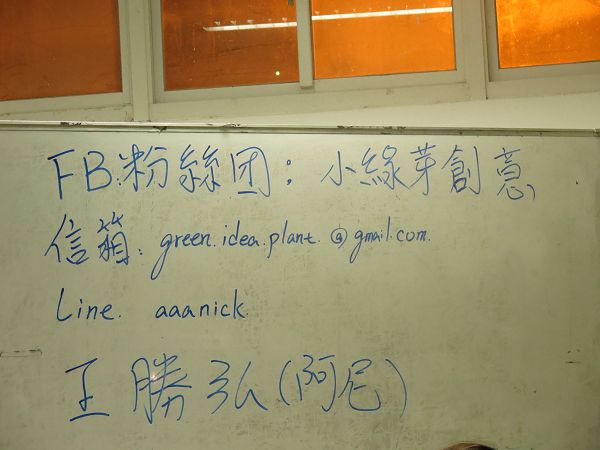 FB:粉絲团：小綠芽創意
信箱：green.idea.plant.@gmail.com.
Line. aaanick.
王勝弘(阿尼)